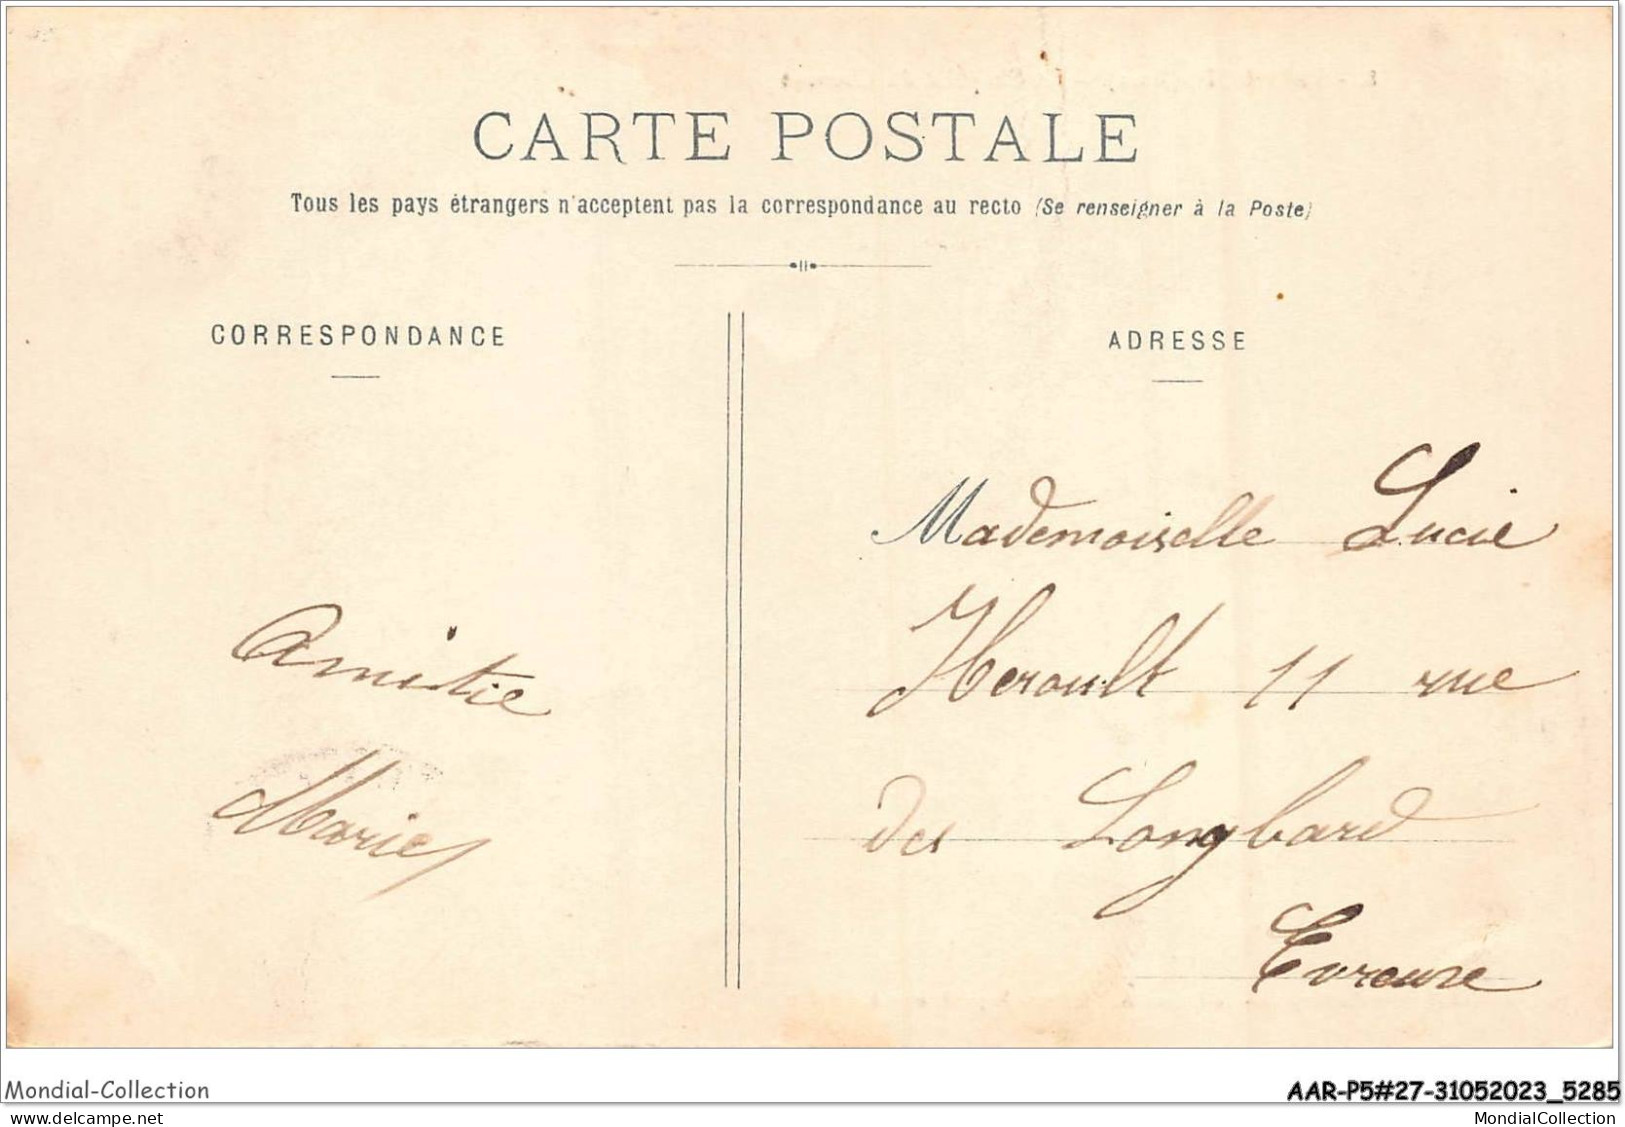 CARTE POSTALE
Tous les pays étrangers n'acceptent pas la correspondance au recto (Se renseigner à la Poste)
CORRESPONDANCE
ADRESSE
Amitie
Marie
Mademoiselle Lucie
Herault 11 rue
des Longbard
Evreuxe
Mondial-Collection
AAR-P5#27-31052023_5285
Propriété de / Property of MondialCollection
MondialCollection